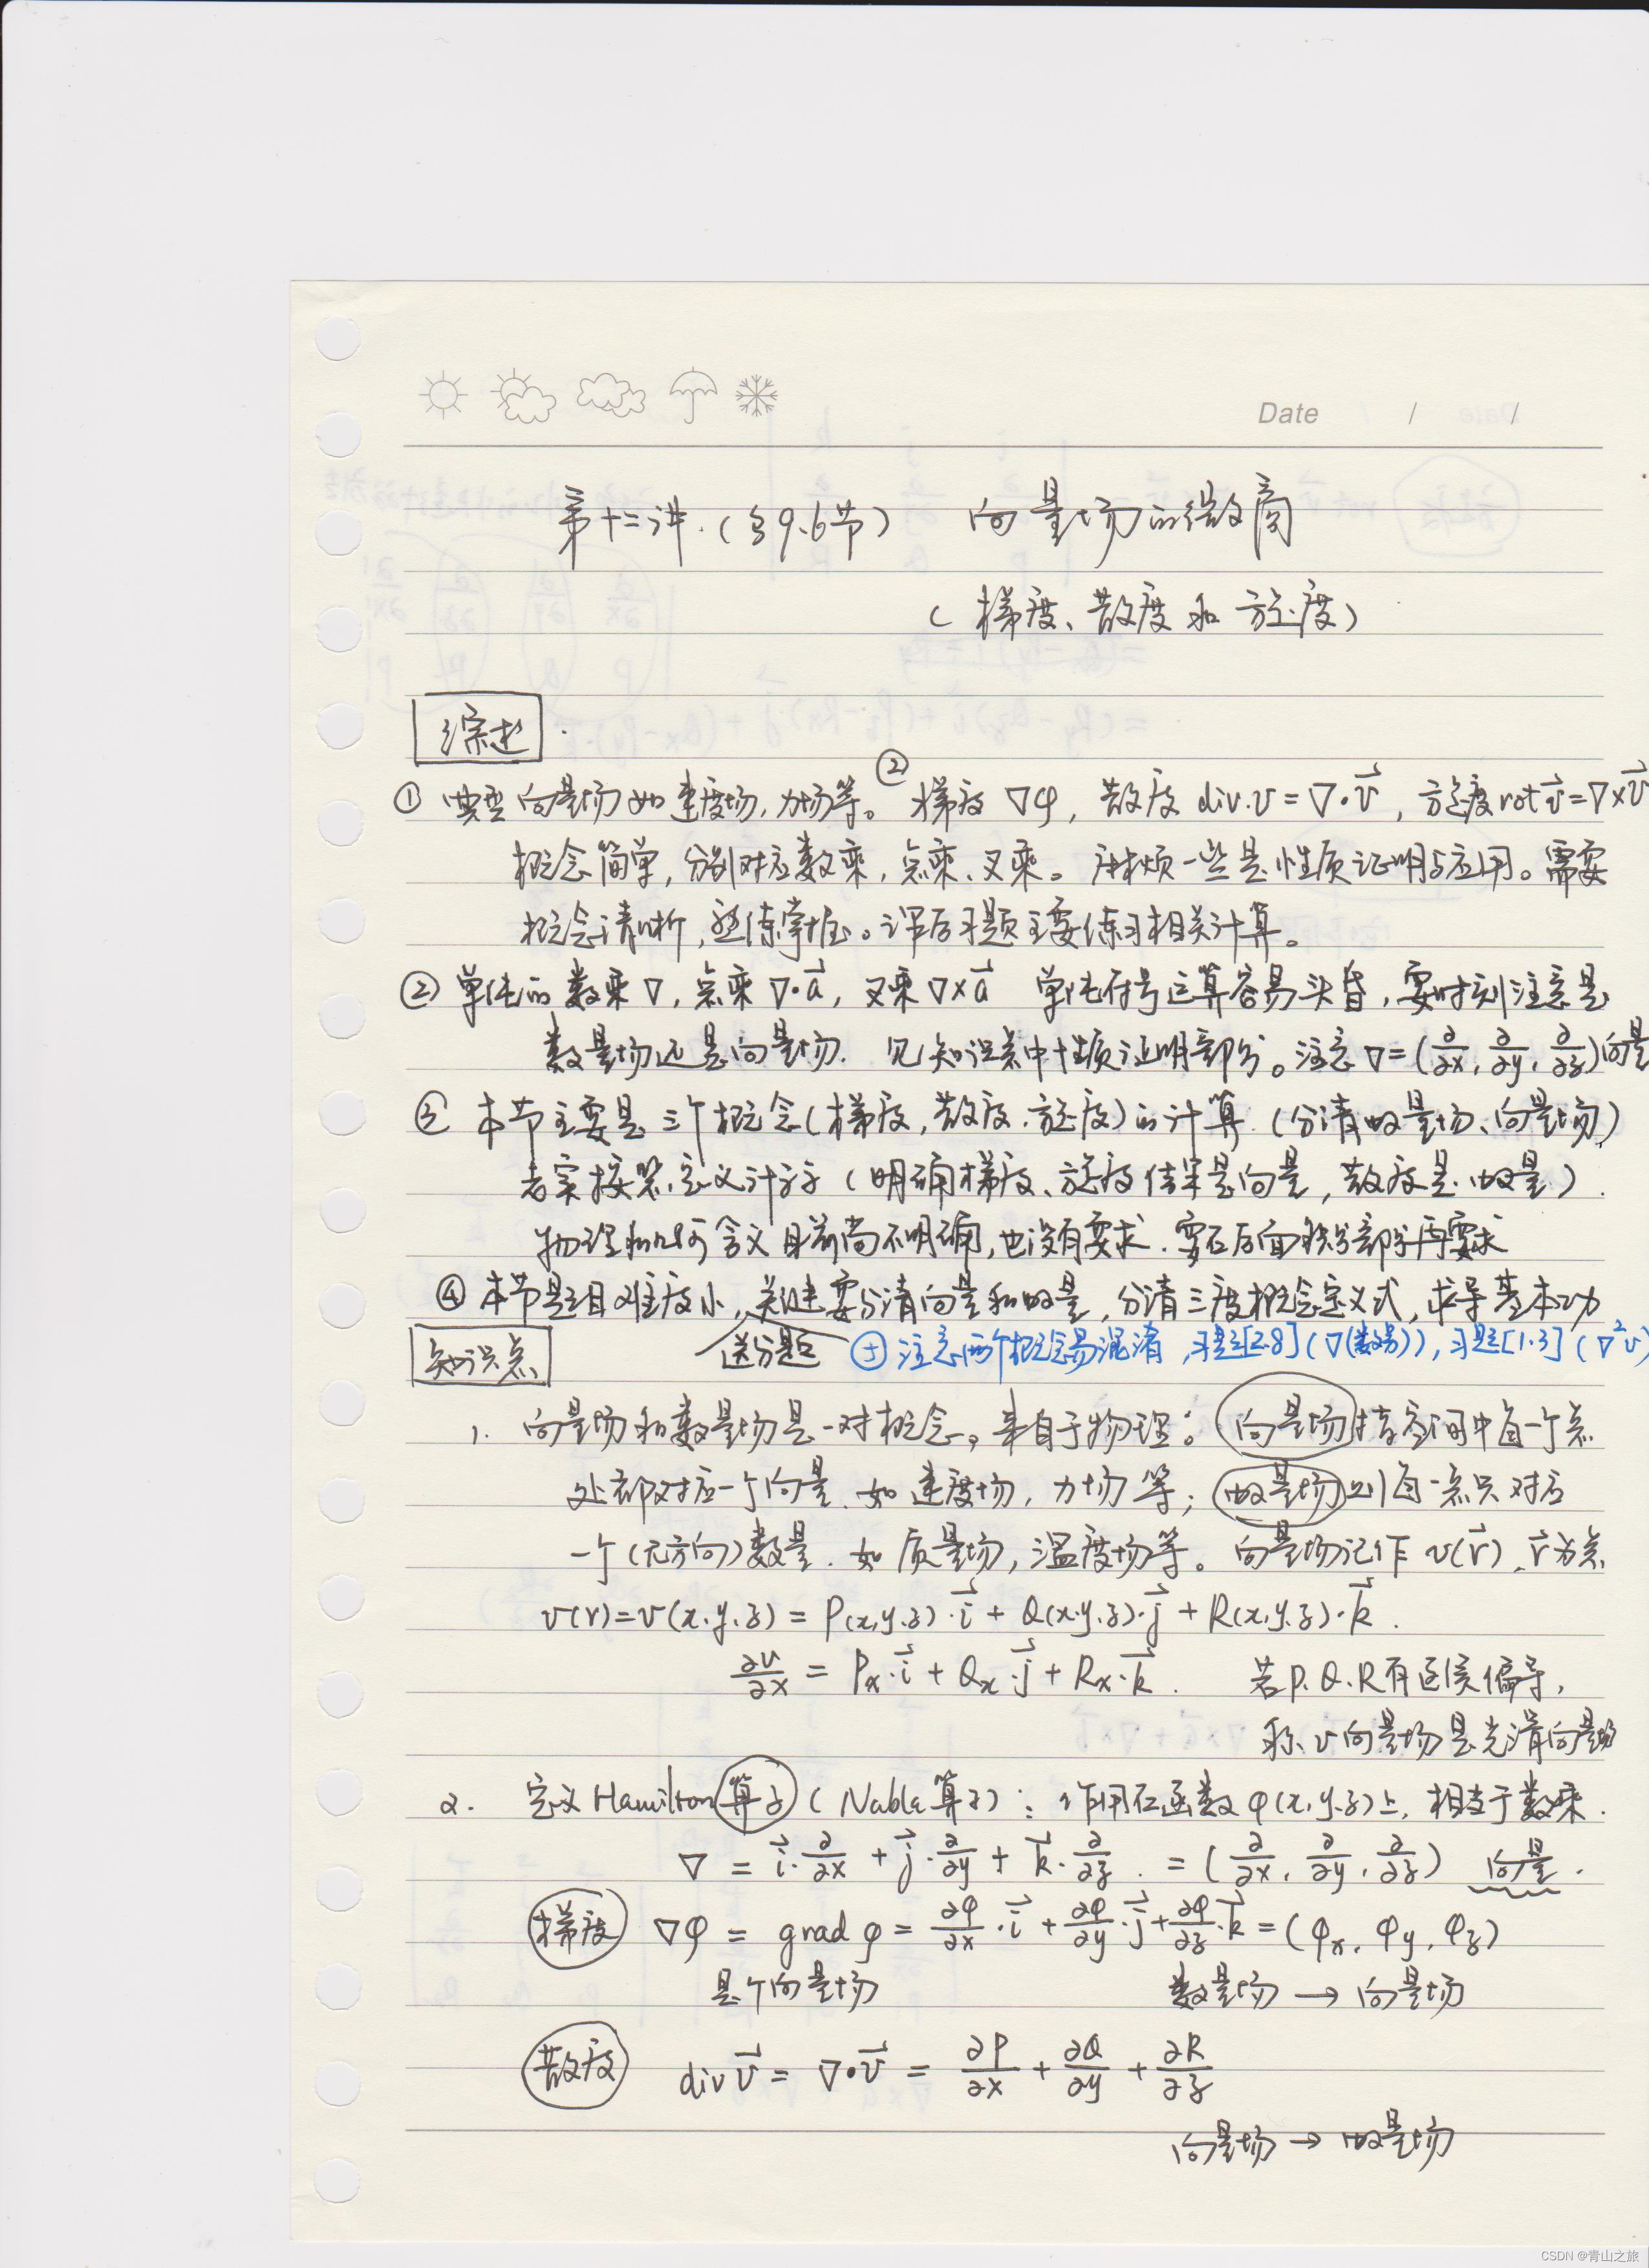 Date / /
第十二讲.(§9.6节) 向量场的微商
(梯度、散度和旋度)
综述.
① 典型向量场如速度场,力场等。② 梯度∇φ, 散度 div.v=∇•v⃗, 旋度rot v⃗=∇×v⃗
概念简单,分别对应数乘,点乘、叉乘。麻烦一些是性质证明与应用。需要
概念清晰,熟练掌握。课后习题主要练习相关计算。
② 单纯的数乘∇,点乘∇•a⃗,叉乘∇×a⃗ 单纯符号运算容易头昏,要时刻注意是
数量场还是向量场. 见知识点中性质证明部分。注意∇=(∂/∂x, ∂/∂y, ∂/∂z)向量
③ 本节主要是三个概念(梯度,散度.旋度)的计算.(分清数量场、向量场)
老实按照定义计算(明确梯度、旋度结果是向量,散度是数量).
物理和几何含义目前尚不明确,也没有要求.要在后面积分部分再要求
④ 本节题目难度小,关键要分清向量和数量,分清三度概念定义式,求导基本功
知识点 送分题 ⑤ 注意两个概念易混淆,习题[2.8](∇(数量)),习题[1.3](∇²v)
1. 向量场和数量场是一对概念。来自于物理:向量场指空间中每一个点
处都对应一个向量.如速度场,力场等;数量场则每一点只对应
一个(无方向)数量.如质量场,温度场等。向量场记作 v(r⃗),r⃗为点
v(r)=v(x.y.z)=P(x,y,z)·i⃗+Q(x.y.z)·j⃗+R(x,y.z)·k⃗.
∂v/∂x=Px·i⃗+Qx·j⃗+Rx·k⃗. 若P.Q.R有连续偏导,
称v向量场是光滑向量场
2. 定义Hamilton算子(Nabla算子):作用在函数φ(x,y.z)上,相当于数乘.
∇=i⃗·∂/∂x+j⃗·∂/∂y+k⃗·∂/∂z.=(∂/∂x,∂/∂y,∂/∂z) 向量.
梯度 ∇φ=grad φ=∂φ/∂x·i⃗+∂φ/∂y·j⃗+∂φ/∂z·k⃗=(φx,φy,φz)
是个向量场 数量场→向量场
散度 div v⃗=∇•v⃗=∂P/∂x+∂Q/∂y+∂R/∂z
向量场→数量场
CSDN @青山之旅